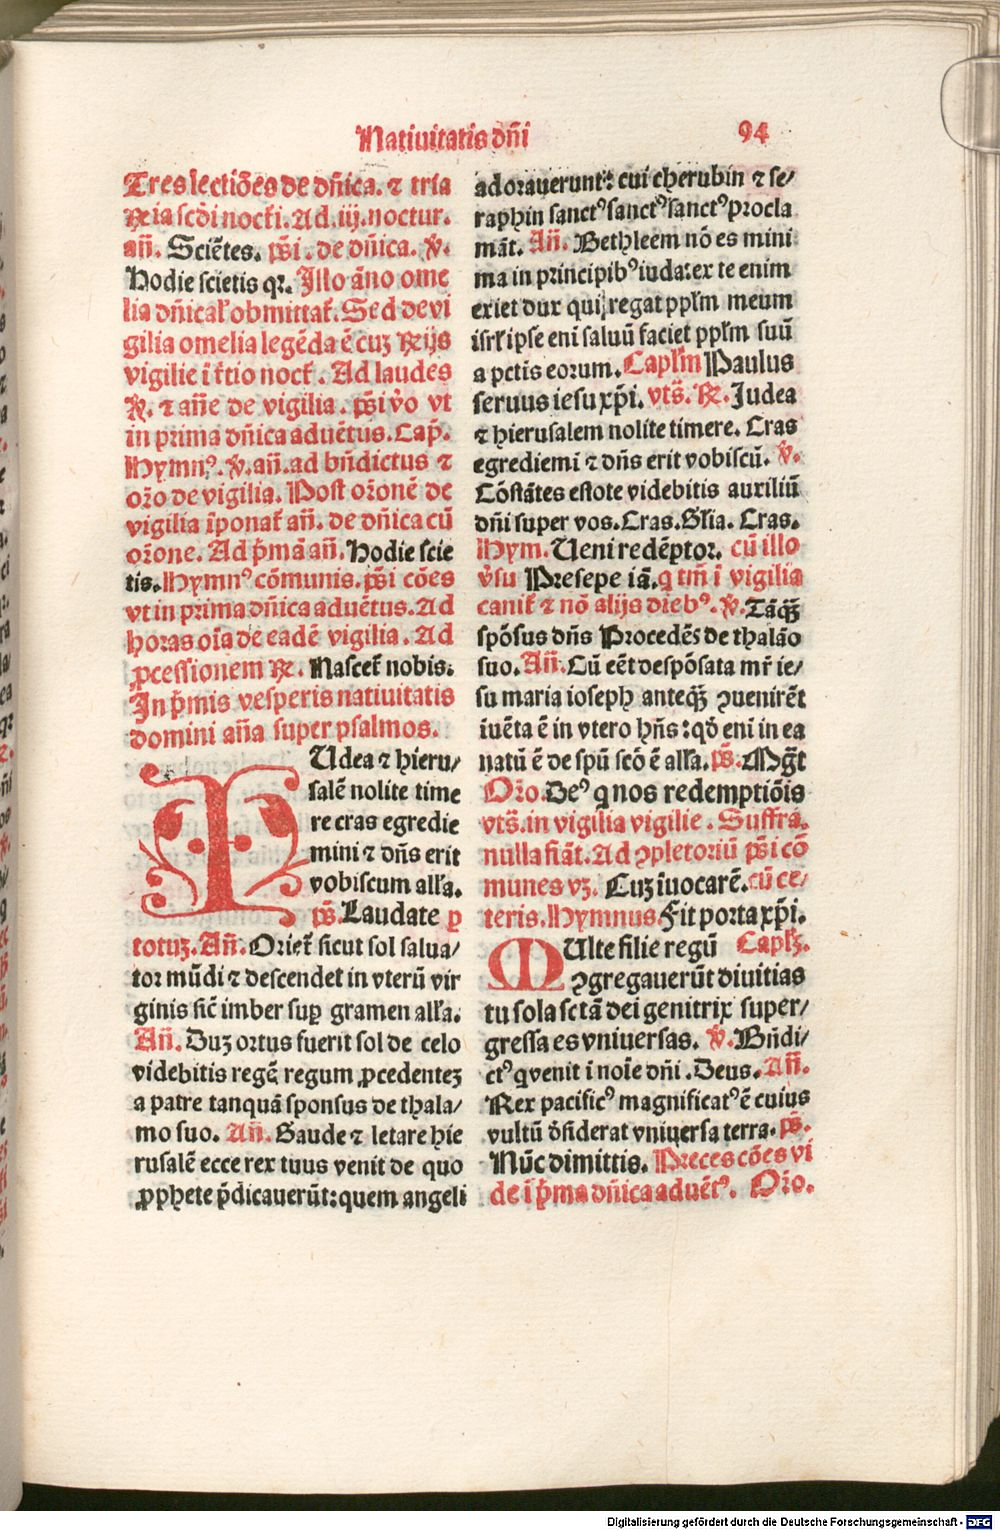 Natiuitatis dn̄i
94
Tres lectiōes de dn̄ica. ⁊ tria
℞ia scd̄i nocťi. Ad .iij. noctur.
an̄. Sciētes. ps̄i . de dn̄ica. ℣.
Hodie scietis qꝛ. Illo āno ome
lia dn̄icaľ obmittať. Sed de vi
gilia omelia legēda ē cuꝫ ℞ijs
vigilie ī ťtio nocť. Ad laudes
℣. ⁊ an̄e de vigilia . ps̄i v̄o vt
in prima dn̄ica aduētus. Cap̄.
Hymnꝰ. ℣. an̄. ad bn̄dictus ⁊
oꝛ̄o de vigilia. Post oꝛ̄onē de
vigilia īponať an̄. de dn̄ica cū
oꝛ̄one. Ad p̄mā an̄. Hodie scie
tis. Hymnꝰ cōmunis. ps̄i cōes
vt in prima dn̄ica aduētus. Ad
horas oīa de eadē vigilia . Ad
ꝓcessionem ℞. Nasceť nobis.
In p̄mis vesperis natiuitatis
domini an̄a super psalmos.
IUdea ⁊ hieru/
salē nolite time
re cras egredie
mini ⁊ dn̄s erit
vobiscum alľa.
ps̄. Laudate ꝑ
totuꝫ. An̄. Orieť sicut sol salua/
tor mūdi ⁊ descendet in vterū vir
ginis sic̄ imber suꝑ gramen alľa.
An̄. Duꝫ ortus fuerit sol de celo
videbitis regē regum ꝓcedenteꝫ
a patre tanquā sponsus de thala/
mo suo. An̄. Gaude ⁊ letare hie
rusalē ecce rex tuus venit de quo
ꝓphete p̄dicauerūt: quem angeli
adorauerunt: cui cherubin ⁊ se/
raphin sanctꝰ sanctꝰ sanctꝰ procla
māt. An̄. Bethleem nō es mini
ma in principibꝰ iuda: ex te enim
exiet dux qui regat ppľm meum
isrľ ipse eni saluū faciet ppľm suū
a pctis eorum. Capľm Paulus
seruus iesu xp̄i. vts̄. ℞. Iudea
⁊ hierusalem nolite timere. Cras
egrediemi ⁊ dn̄s erit vobiscū. ℣.
Cōstātes estote videbitis auxiliū
dn̄i super vos. Cras. Gľia. Cras.
Hym. Ueni redēptor. cū illo
v̄su Presepe iā. q tm̄ ī vigilia
caniť ⁊ nō alijs diebꝰ. ℣. Tāqꝫ̄
spōsus dn̄s Procedēs de thalāo
suo. An̄. Cū eēt despōsata mr̄ ie/
su maria ioseph anteqꝫ̄ ꝯuenirēt
iuēta ē in vtero hn̄s: qd̄ eni in ea
natū ē de spū scō ē alľa. ps̄. Mgt̄
Oꝛ̄o. Deꝰ q nos redemptiōis
vts̄. in vigilia vigilie . Suffra.
nulla fiāt. Ad ꝯpletoriū ps̄i cō
munes vꝫ. Cuꝫ īuocarē. cū ce/
teris. Hymnus. Fit porta xp̄i.
MUlte filie regū Capľꝫ.
ꝯgregauerūt diuitias
tu sola sctā dei genitrix super/
gressa es vniuersas. ℣. Bn̄di/
ctꝰ q venit ī noīe dn̄i . Deus. An̄.
Rex pacificꝰ magnificatꝰ ē cuius
vultū d̄siderat vniuersa terra. ps̄.
Nūc dimittis. Preces cōes vi
de ī p̄ma dn̄ica aduētꝰ. Oꝛ̄o.
Digitalisierung gefördert durch die Deutsche Forschungsgemeinschaft - DFG